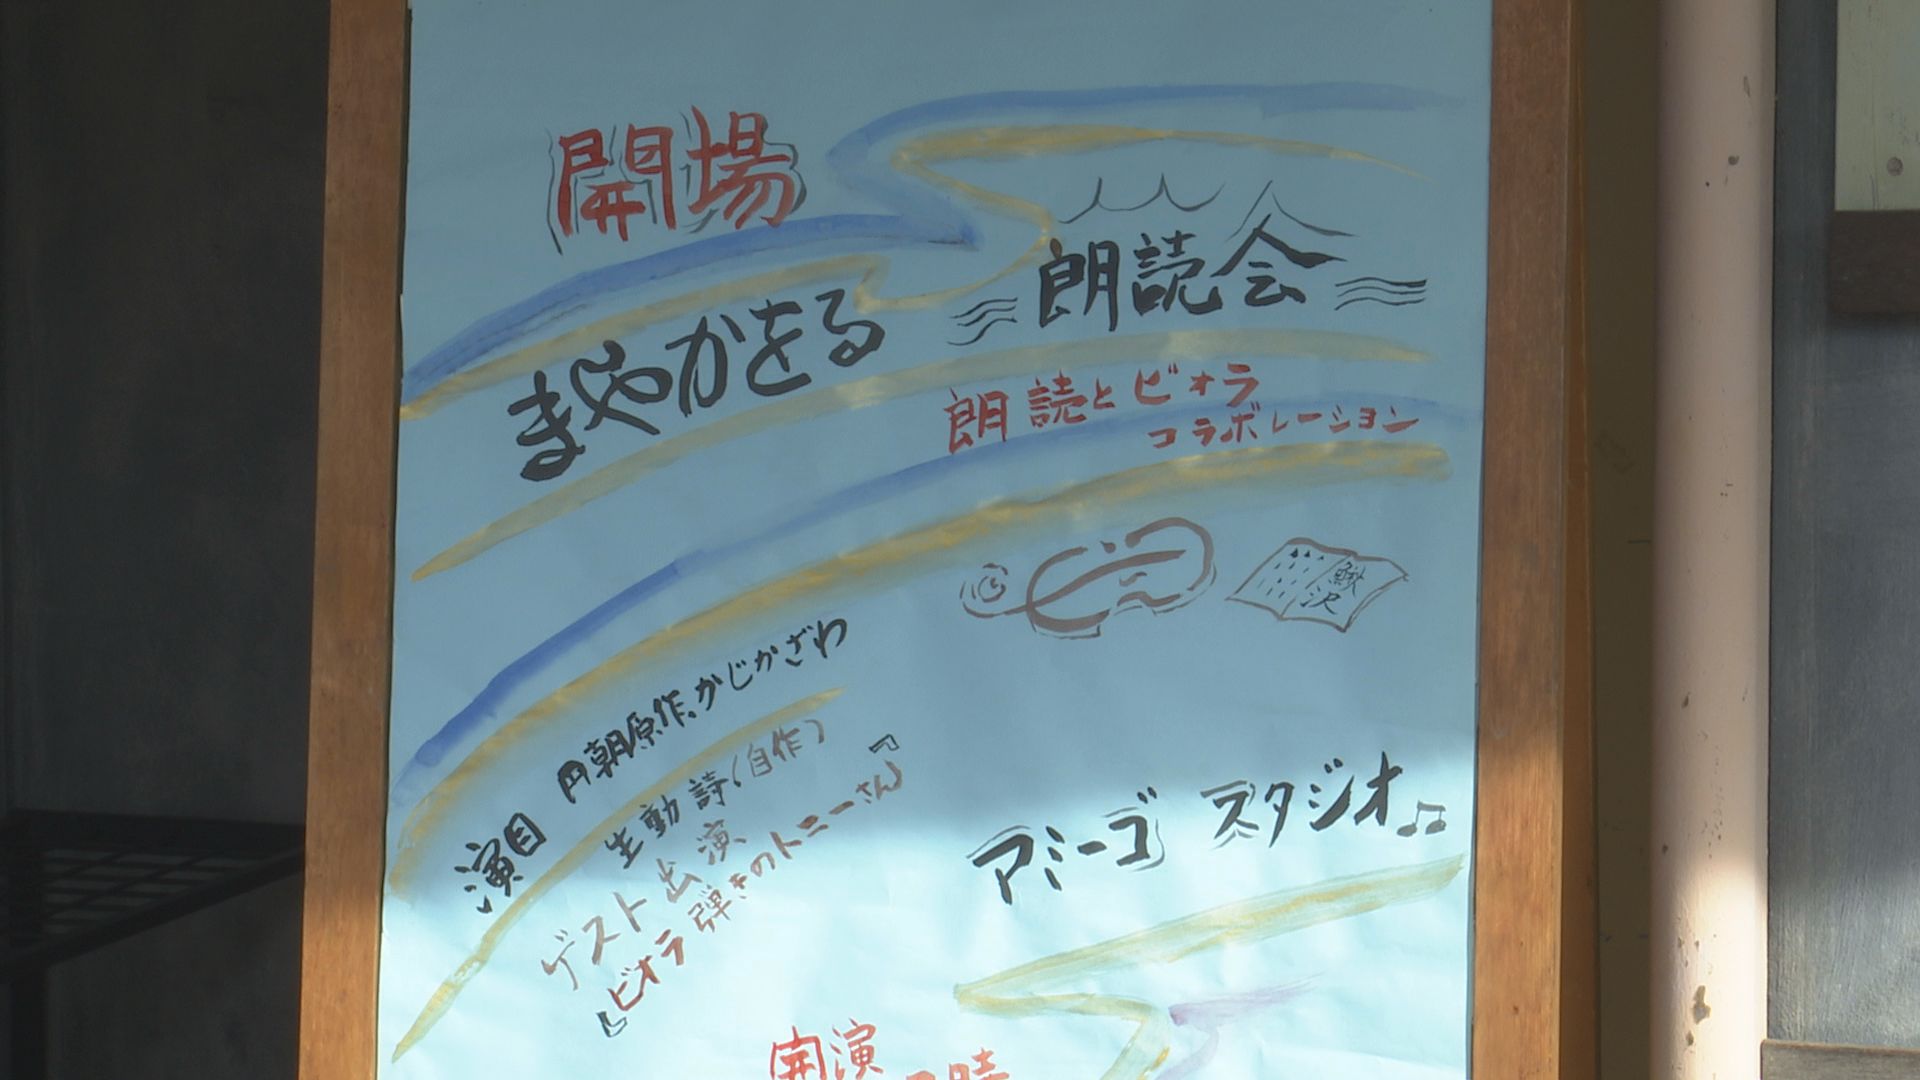 開場
まやかをる
朗読会
朗読とビオラ
コラボレーション
鰍沢
演目 円朝原作、かじかざわ
生動詩(自作)
ゲスト出演
『ビオラ弾きのトニーさん』
アミーゴ スタジオ
開演
時